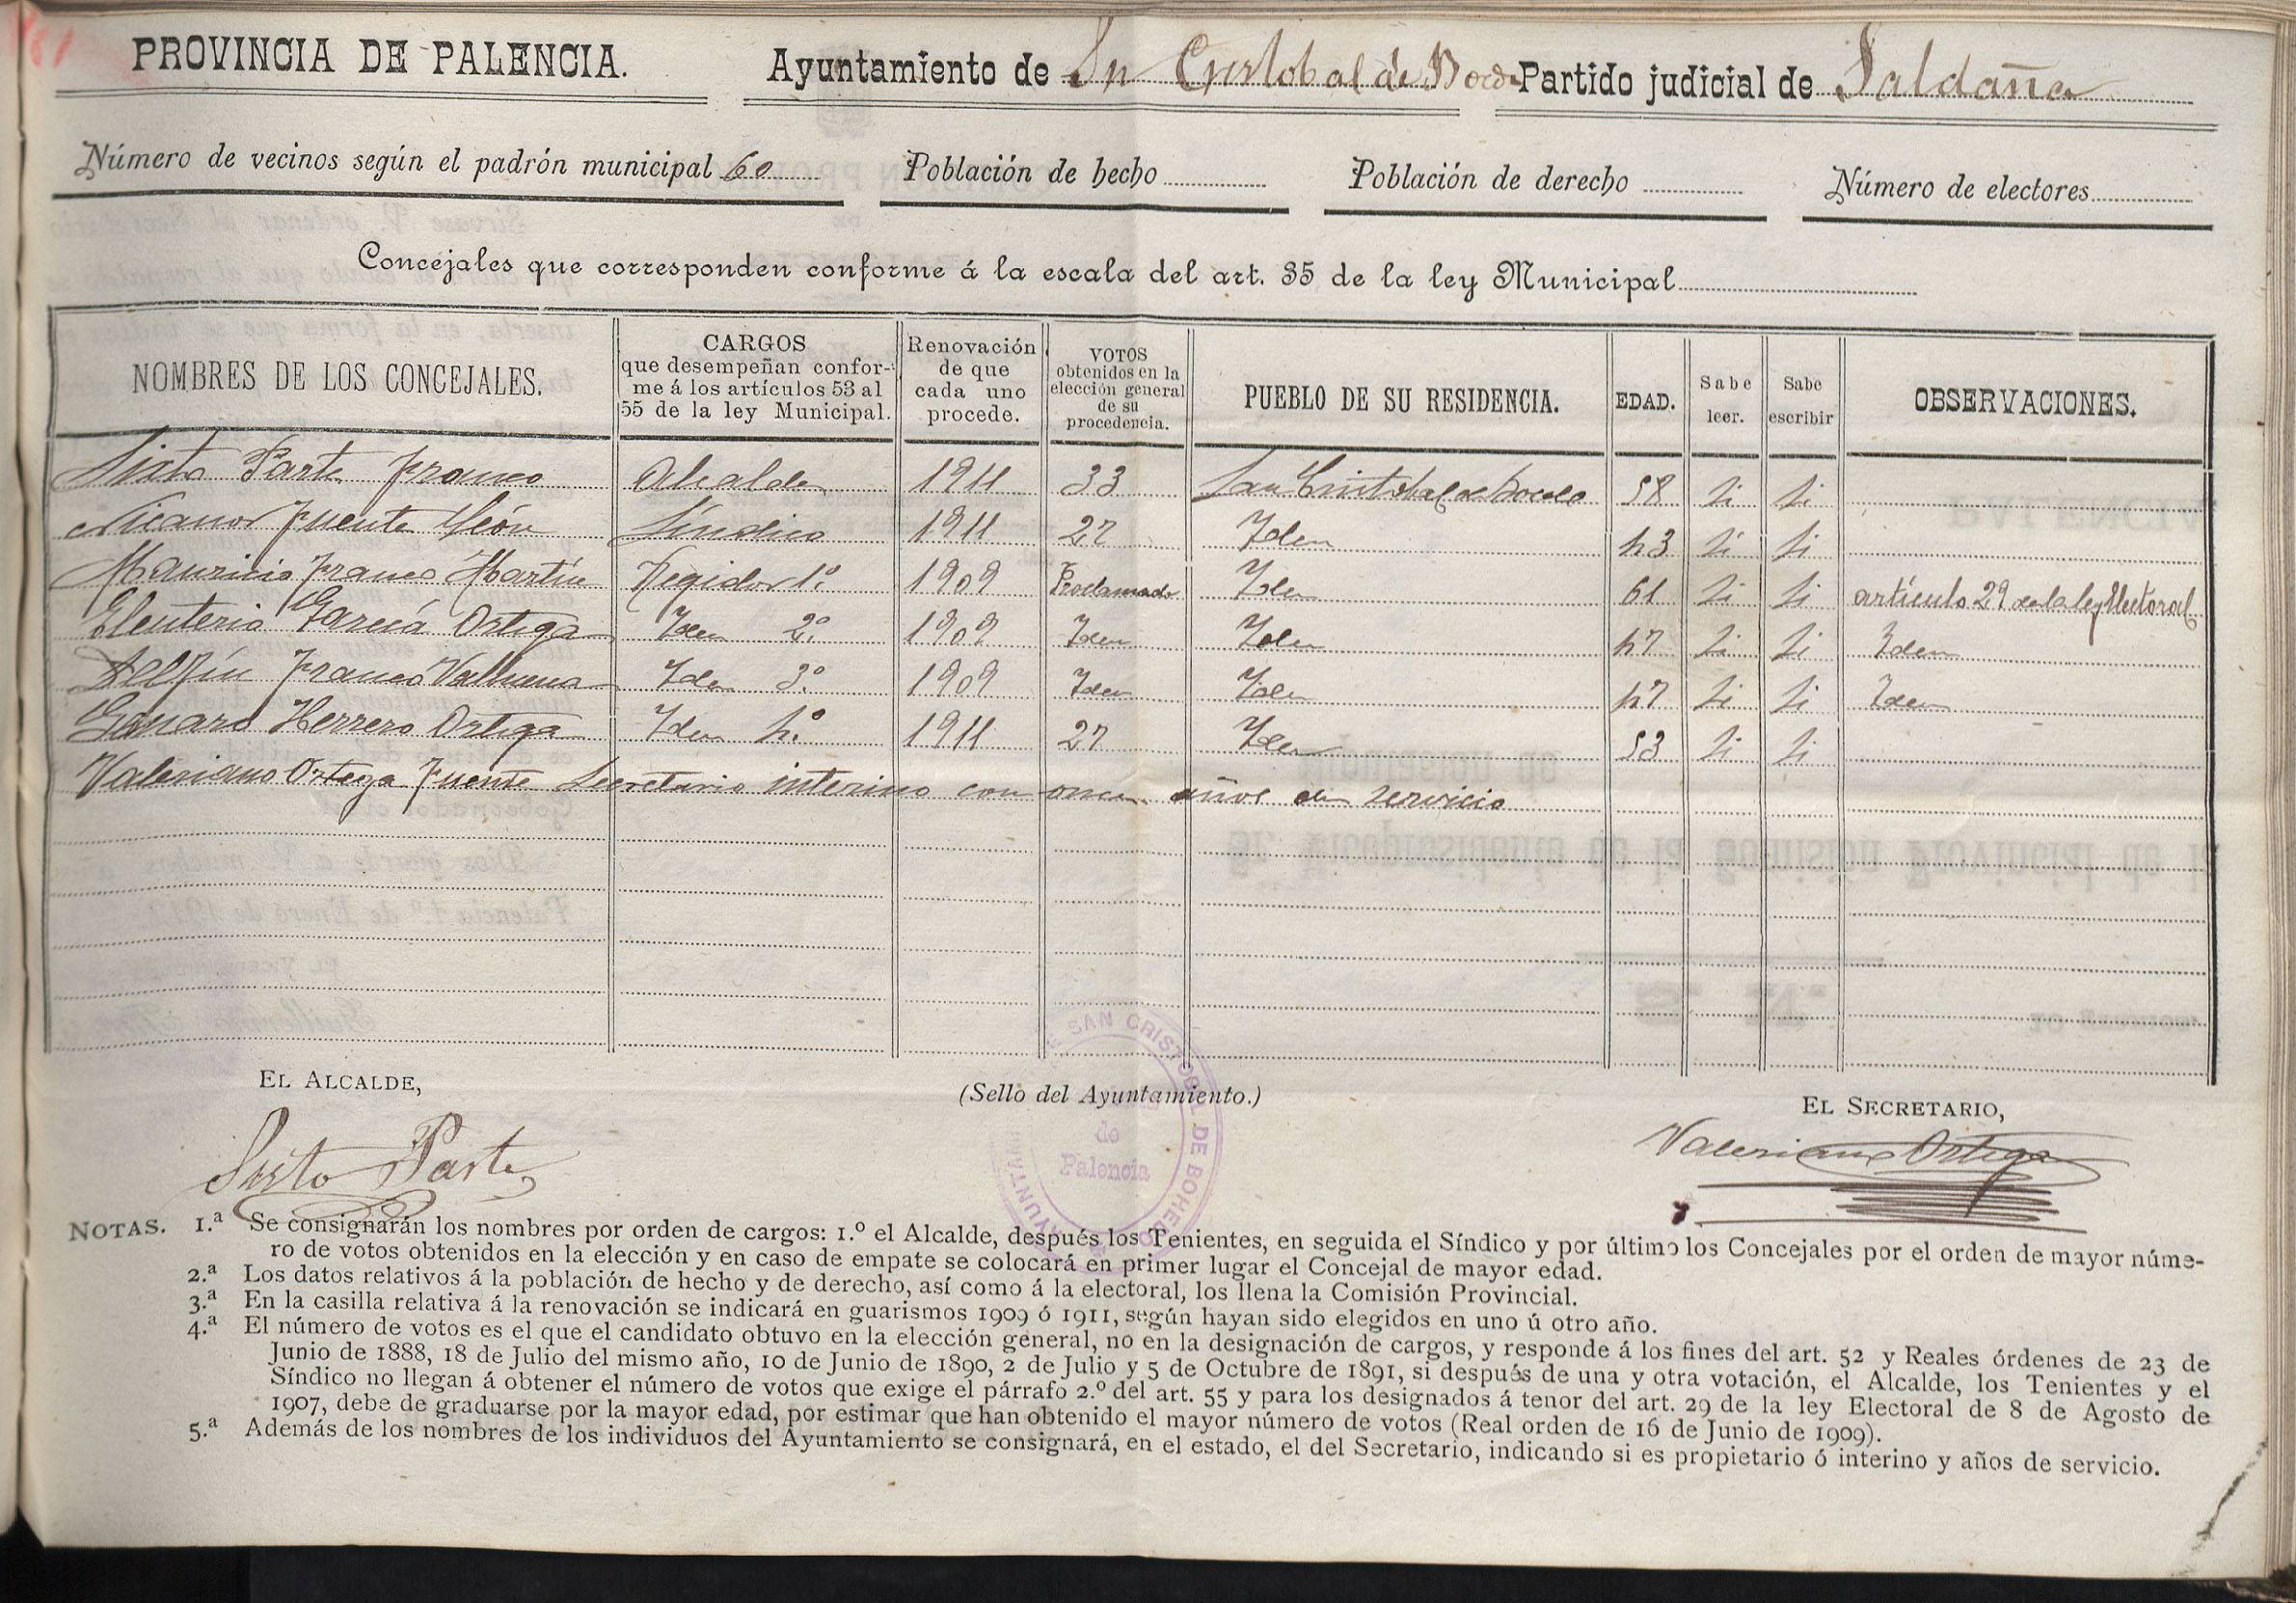 PROVINCIA DE PALENCIA.
Ayuntamiento de Sn Cristobal de Boedo Partido judicial de Saldaña
Número de vecinos según el padrón municipal 60 Población de hecho Población de derecho Número de electores
Concejales que corresponden conforme á la escala del art. 35 de la ley Municipal
NOMBRES DE LOS CONCEJALES. CARGOS que desempeñan confor- me á los artículos 53 al 55 de la ley Municipal. Renovación de que cada uno procede. VOTOS obtenidos en la elección general de su procedencia. PUEBLO DE SU RESIDENCIA. EDAD. Sabe leer. Sabe escribir OBSERVACIONES.
Sixto Parte Franco Alcalde 1911 33 San Cristobal de Boedo 58 Si Si
Nicanor Fuente León Síndico 1911 27 Iden 43 Si Si
Mauricio Franco Martín Regidor 1º 1909 Proclamado Iden 61 Si Si artículo 29 de la ley Electoral
Eleuterio García Ortega Iden 2º 1909 Iden Iden 47 Si Si Iden
Delfín Franco Valbuena Iden 3º 1909 Iden Iden 47 Si Si Iden
Genaro Herrero Ortega Iden 4º 1911 27 Iden 53 Si Si
Valeriano Ortega Fuente Secretario interino con once años de servicio
EL ALCALDE,
(Sello del Ayuntamiento.)
EL SECRETARIO,
Sixto Parte
Valeriano Ortega
SAN CRISTOBAL DE BOHEDO
de
Palencia
NOTAS. 1.ª Se consignarán los nombres por orden de cargos: 1.º el Alcalde, después los Tenientes, en seguida el Síndico y por último los Concejales por el orden de mayor núme-
ro de votos obtenidos en la elección y en caso de empate se colocará en primer lugar el Concejal de mayor edad.
2.ª Los datos relativos á la población de hecho y de derecho, así como á la electoral, los llena la Comisión Provincial.
3.ª En la casilla relativa á la renovación se indicará en guarismos 1909 ó 1911, según hayan sido elegidos en uno ú otro año.
4.ª El número de votos es el que el candidato obtuvo en la elección general, no en la designación de cargos, y responde á los fines del art. 52 y Reales órdenes de 23 de
Junio de 1888, 18 de Julio del mismo año, 10 de Junio de 1890, 2 de Julio y 5 de Octubre de 1891, si después de una y otra votación, el Alcalde, los Tenientes y el
Síndico no llegan á obtener el número de votos que exige el párrafo 2.º del art. 55 y para los designados á tenor del art. 29 de la ley Electoral de 8 de Agosto de
1907, debe de graduarse por la mayor edad, por estimar que han obtenido el mayor número de votos (Real orden de 16 de Junio de 1909).
5.ª Además de los nombres de los individuos del Ayuntamiento se consignará, en el estado, el del Secretario, indicando si es propietario ó interino y años de servicio.